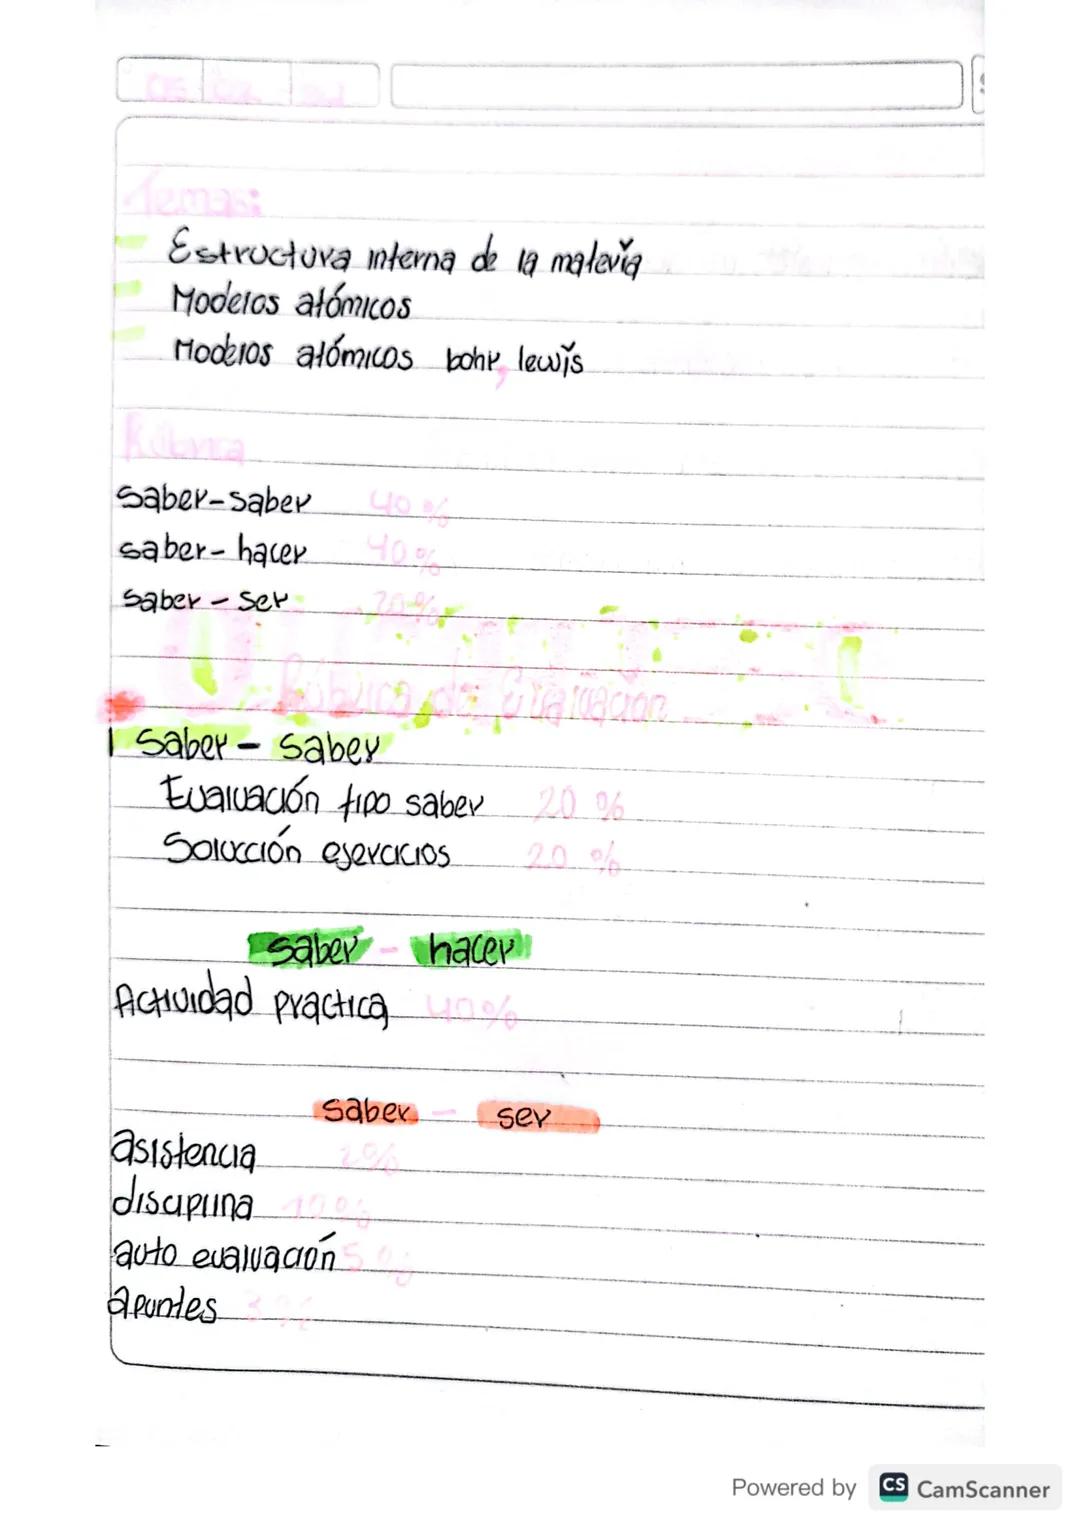 Temas:
Estructura interna de la materia
Modelos atómicos
Modelos atómicos bohr, lewis
Rúbrica
saber-saber 40%
saber-hacer 40%
saber-ser 20%
QUIMICA
Rúbrica de Evaluación
1 saber - saber
Evaluación tipo saber 20 %
Solucción ejercicios 20 %
saber - hacer
Actividad practica 40%
saber - ser
asistencia 2%
disciplina 10%
auto evaluación 5%
apuntes 3%
Powered by CS CamScanner